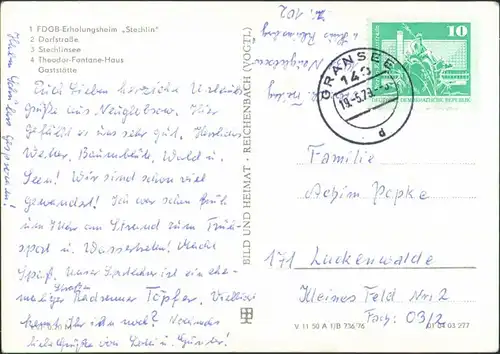 1 FDGB-Erholungsheim „Stechlin"
2 Dorfstraße
3 Stechlinsee
4 Theodor-Fontane-Haus
Gaststätte
Euch Lieben herzliche Urlaubs
grüße aus Neuglobsow. Hier
gefällt es uns sehr gut. Herrliches
Wetter, Baumblüte, Wald u.
Seen! Wir sind schon viel
gewandert! Ich war schon früh
um 7 Uhr am Strand zum Früh-
sport u. Wassertreten! Macht
Spaß. Unser ist ein ehe-
maliger Straßen Radrenner Töpfer. Vielleicht
kennt Ihr ihn noch? Nochmals
liebe Grüße von u. Günter!
BILD UND HEIMAT · REICHENBACH (VOGTL.)
Z. 102
GRANSEE
143
19.5.79
d
10
DEUTSCHE DEMOKRATISCHE REPUBLIK
Familie
Achim Papke
171 Luckenwalde
Kleines Feld Nr. 2
Fach: 03/2
V 11 50 A 1/B 736/76
01 04 03 277